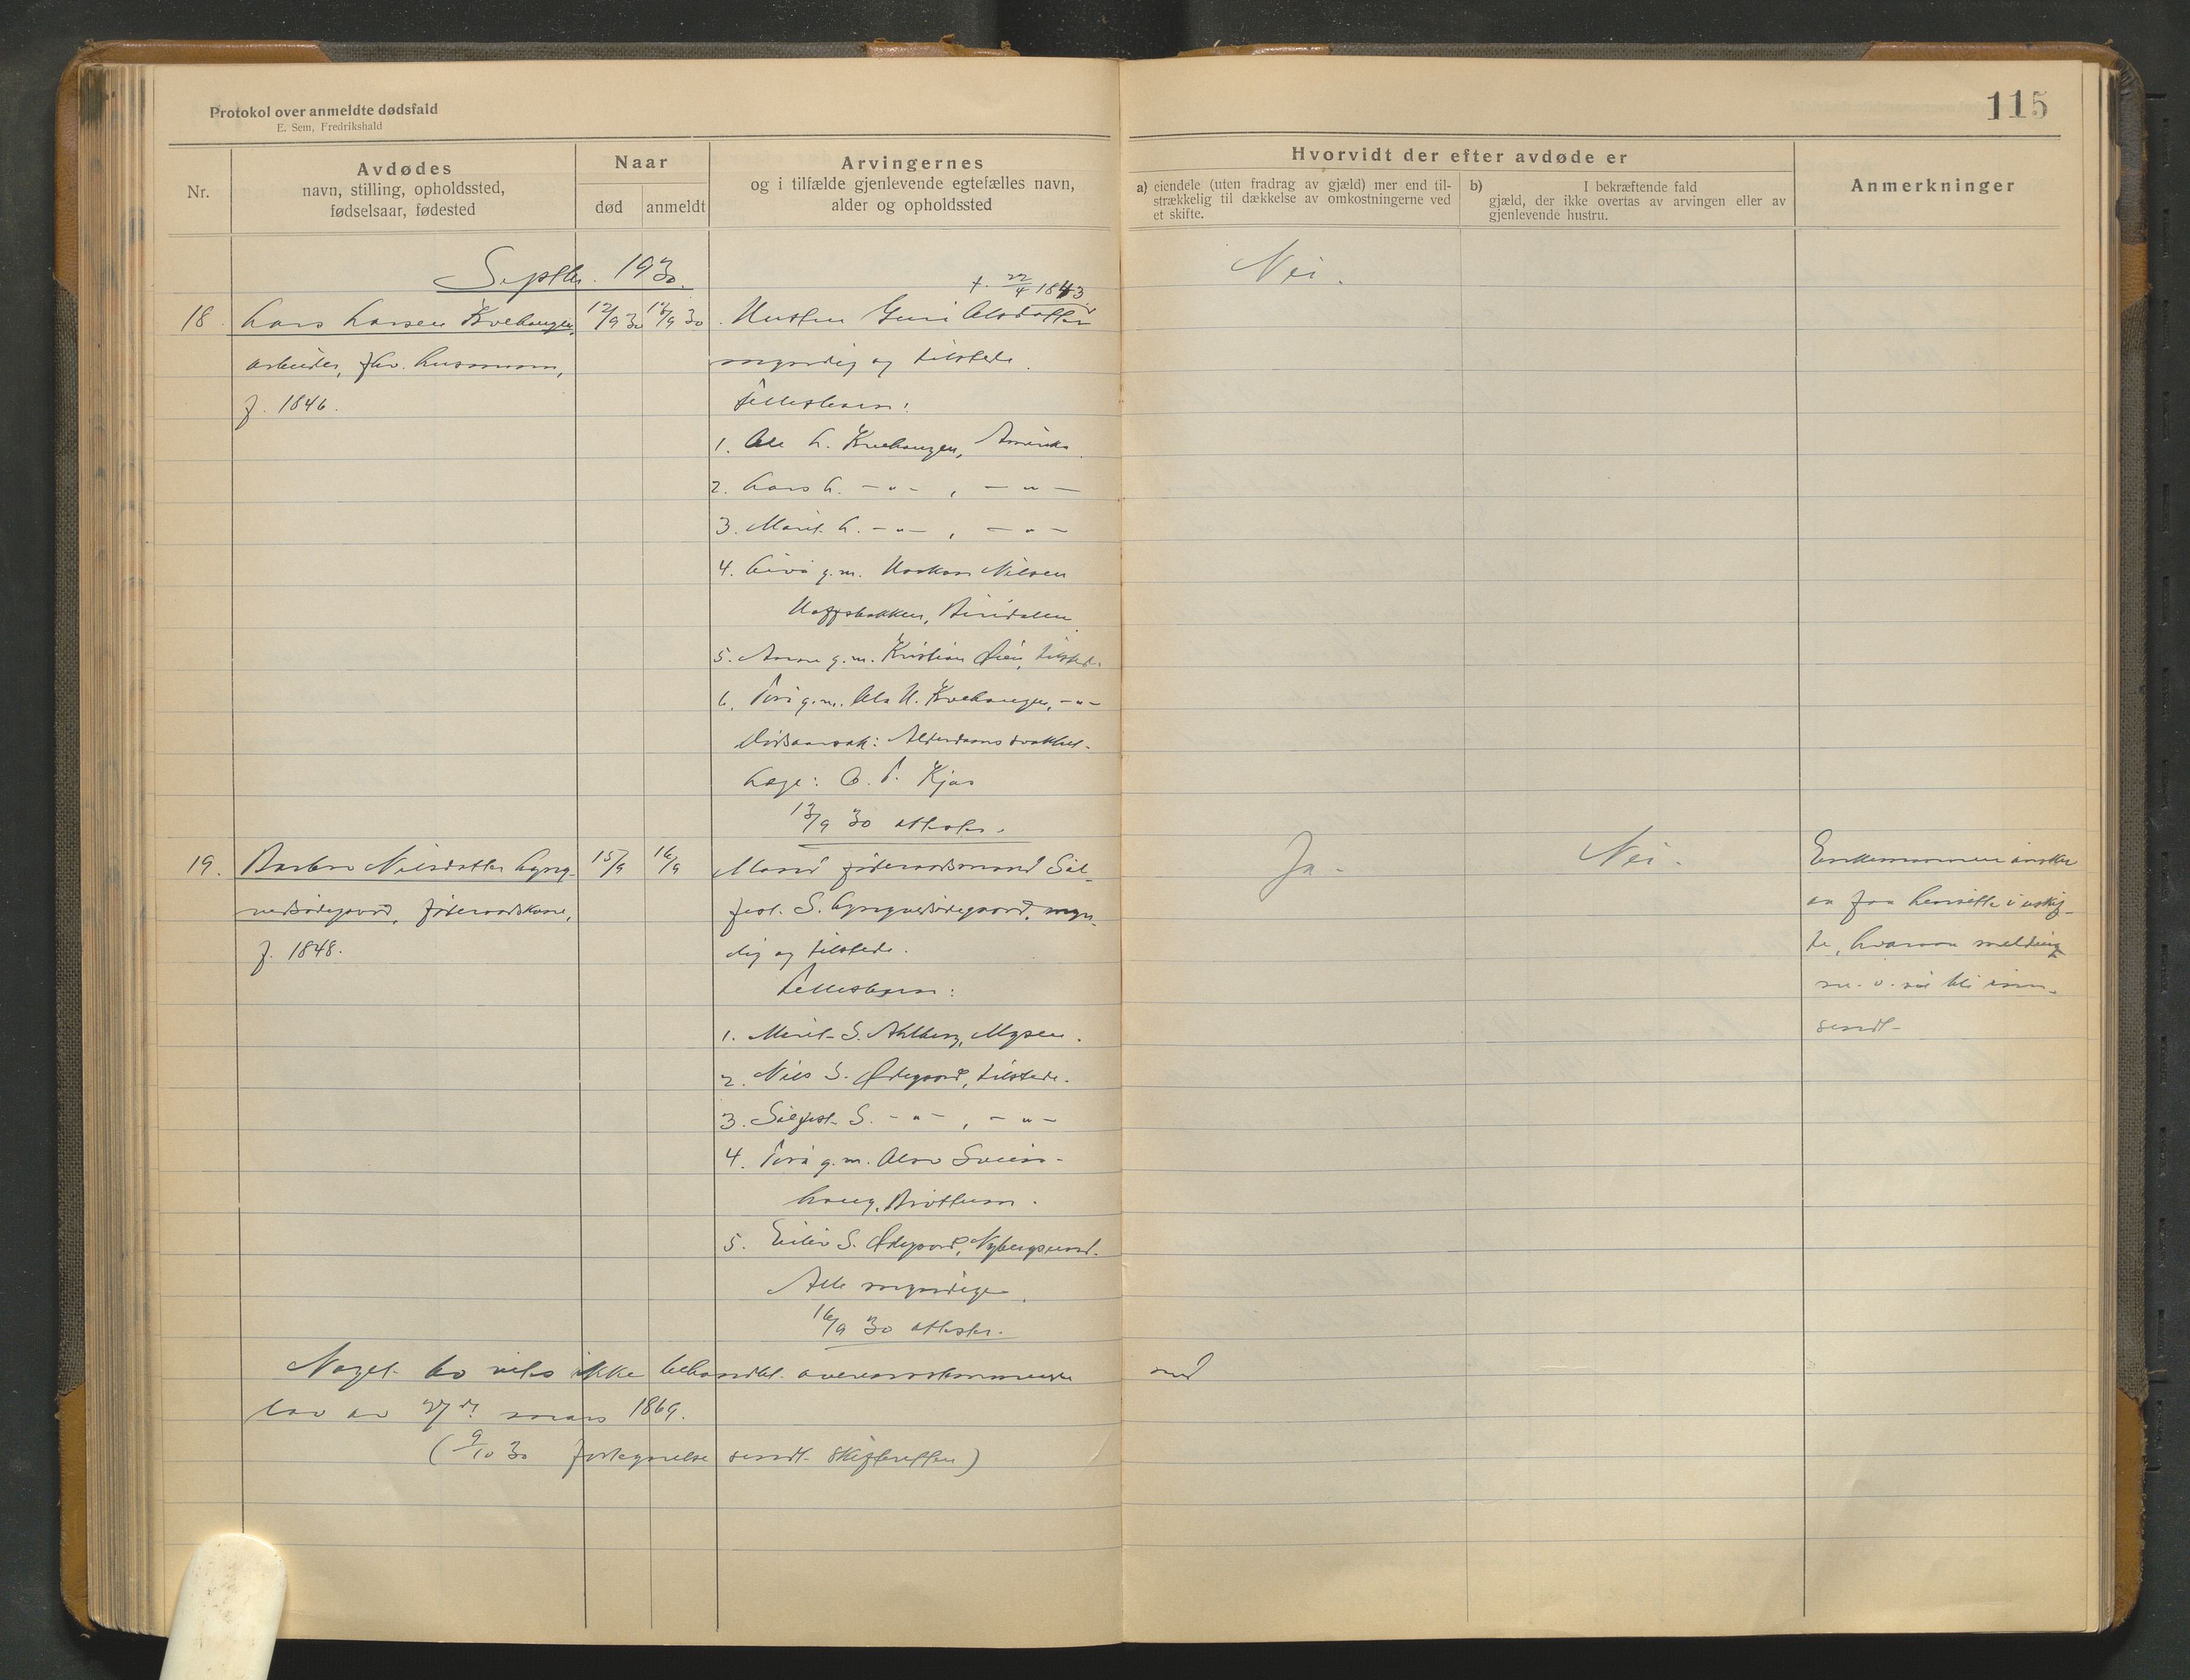 Protokol over anmeldte dødsfald
E. Sem, Fredrikshald
115
Nr.
Avdødes
navn, stilling, opholdssted,
fødselsaar, fødested
Naar
død
anmeldt
Arvingernes
og i tilfælde gjenlevende egtefælles navn,
alder og opholdssted
Hvorvidt der efter avdøde er
a) eiendele (uten fradrag av gjæld) mer end til-
strækkelig til dækkelse av omkostningerne ved
et skifte.
b) I bekræftende fald
gjæld, der ikke overtas av arvingen eller av
gjenlevende hustru.
Anmerkninger
Septbr. 1930.
18. Lars Larsen Kvehaugen, 12/9 30 12/9 30
arbeider, fhv. husmann,
f. 1846.
f. 22/4 1843.
Hustru Guri Olsdatter
myndig og tilstede.
Fellesbarn:
1. Ole L. Kvehaugen, Amerika.
2. Lars L. -"-, -"-
3. Marit L. -"-, -"-
4. Live g.m. Haakon Nilsen
Hoffsbakken, Biridalen.
5. Anne g.m. Kristian Øien, tilstede.
6. Turi g.m. Ole H. Kvehaugen, -"-
Dødsaarsak: Alderdomssvakhet.
Læge: O. T. Kjos
13/9 30 attester.
Nei.
19. Barbro Nilsdatter Lyng- 15/9 16/9
vedødegaard, føderaadskone,
f. 1848.
Mand føderaadsmand Sil-
fest S. Lyngvedødegaard, myn-
dig og tilstede.
Fellesbarn:
1. Marit S. Ahlberg, Mysen.
2. Nils S. Ødegaard, tilstede.
3. Silfest S. -"-, -"-
4. Turi g.m. Olav Svein-
haug, Brøttum.
5. Eiliv S. Ødegaard, Nybergsund.
Alle myndige.
16/9 30 attester.
Ja.
Nei.
Enkemannen ønsker
aa faa hensitte i uskif-
te, hvorom melding
m. v. vil bli inn-
sendt.
Noget bo vites ikke behandlet overensstemmende med
lov av 27de mars 1869.
(9/10 30 fortegnelse sendt skifteretten)